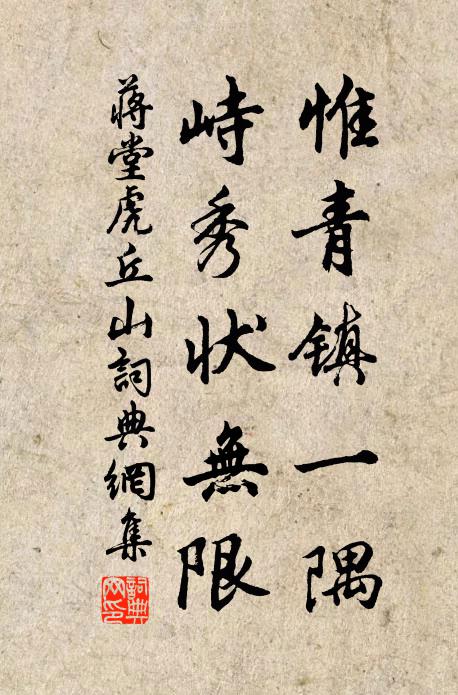 惟青镇一隅
峙秀状無限
蔣堂虎丘山詞典網集
詞典
网印